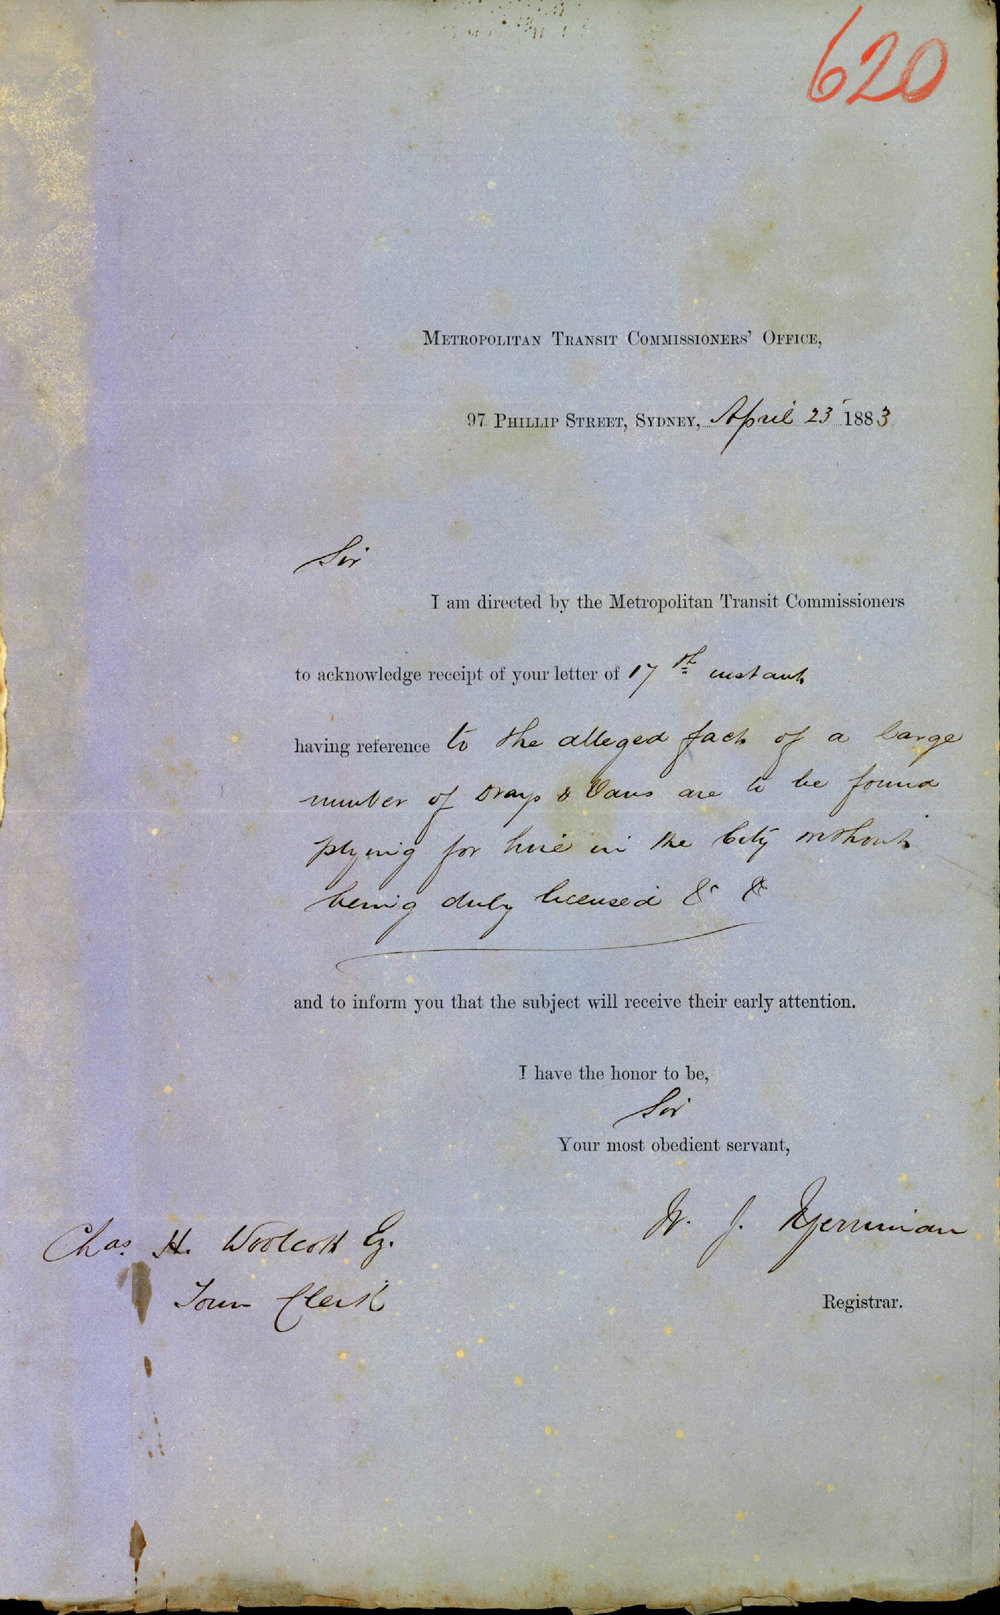 620
METROPOLITAN TRANSIT COMMISSIONERS' OFFICE,
97 PHILLIP STREET, SYDNEY, April 23 1883
Sir
I am directed by the Metropolitan Transit Commissioners
to acknowledge receipt of your letter of 17th instant
having reference to the alleged fact of a large
number of Drays & Vans are to be found
plying for hire in the City without
being duly licensed &c &c
and to inform you that the subject will receive their early attention.
I have the honor to be,
Sir
Your most obedient servant,
W. J. Merriman
Chas. H. Woolcott Esq.
Town Clerk
Registrar.